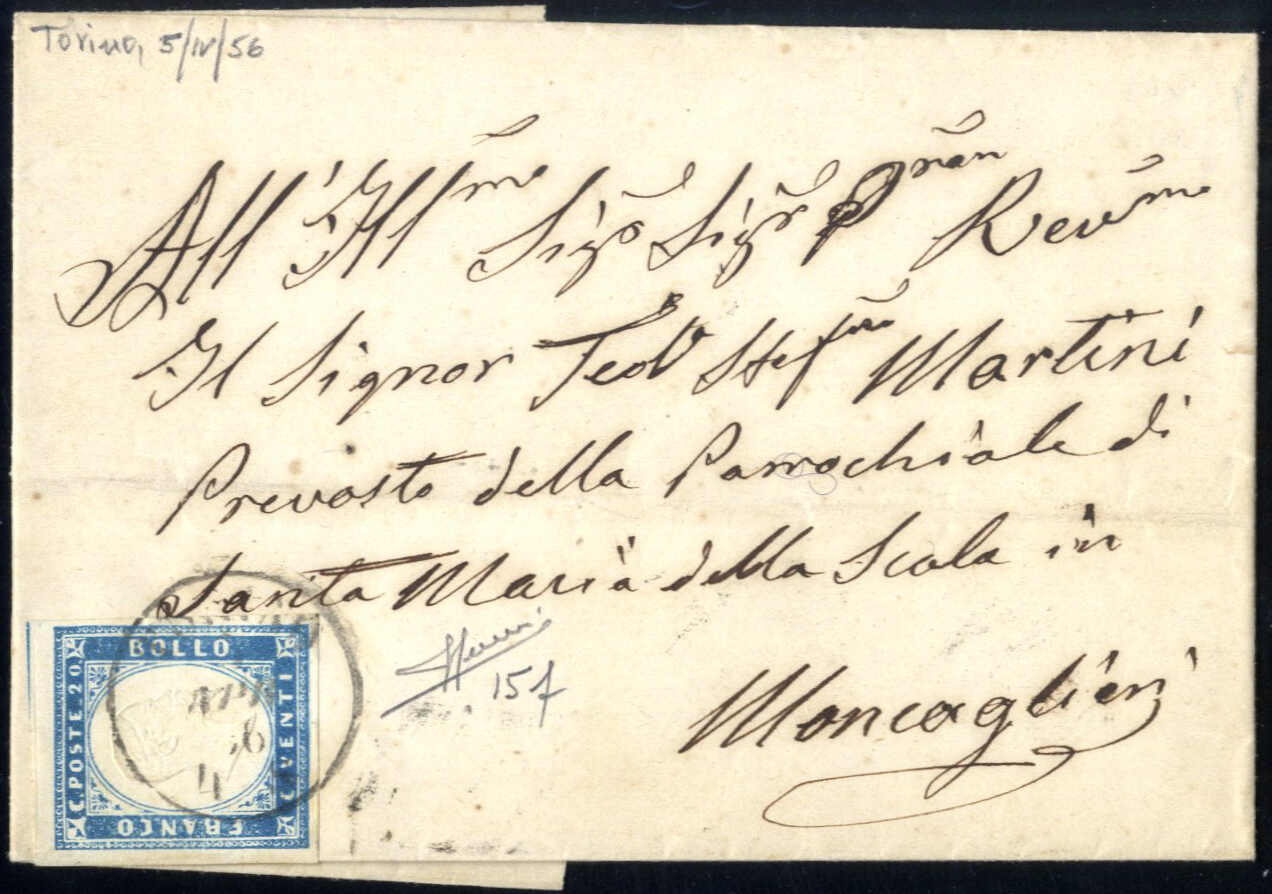 Torino, 5/IV/56
All' Ill.mo Sig.o Sig.r P.ron Rev.mo
Il Signor Teol. Stef.no Martini
Prevosto della Parrochiale di
Santa Maria della Scala in
Moncaglieri
15f
BOLLO
C. POSTE. 20
C. VENTI
FRANCO